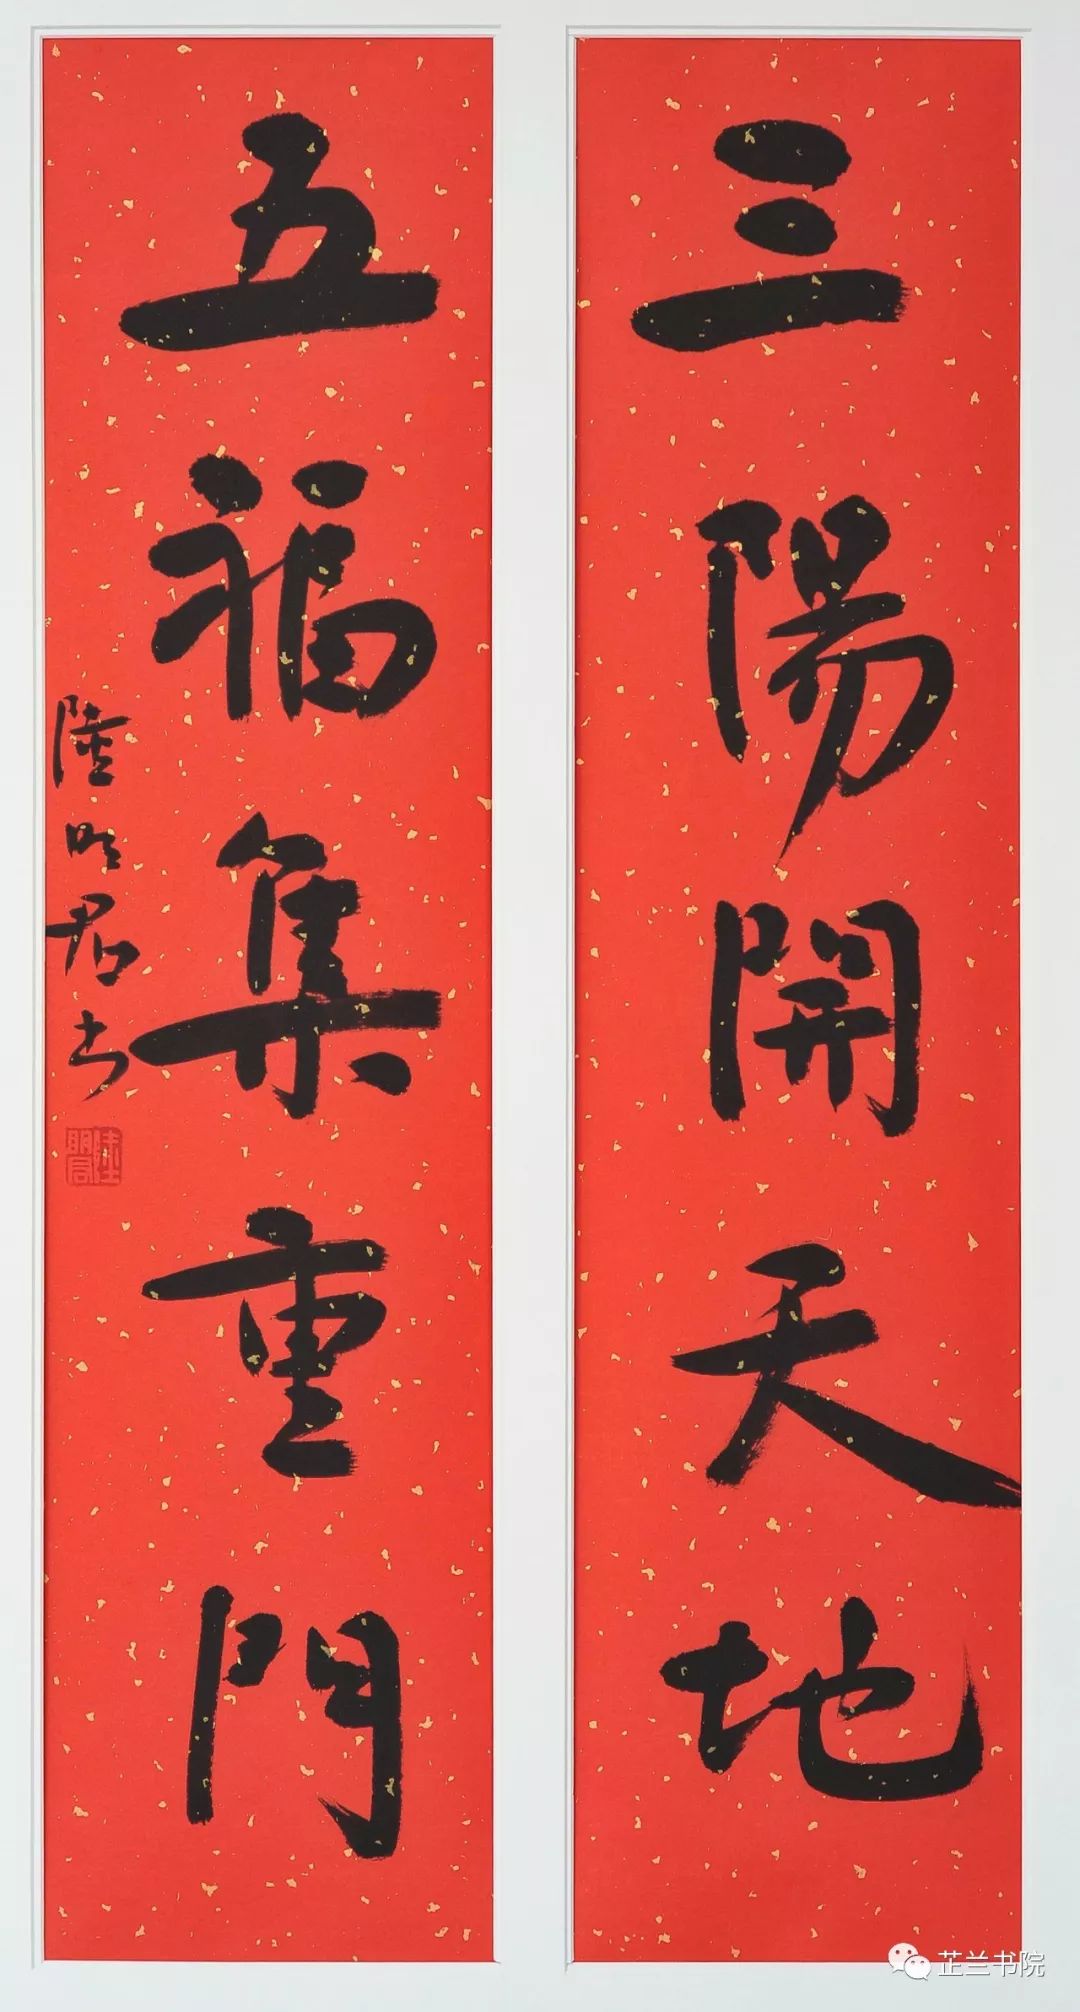 三陽開天地
五福集重門
陸明君书
芷兰书院